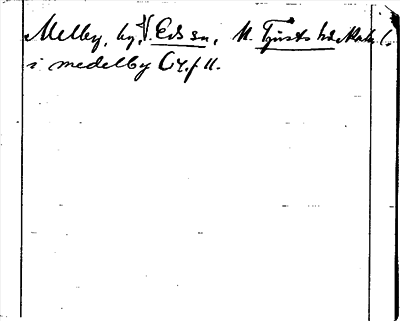 Melby, by, V. Eds sn, N. Tjusts hd, Kalm. l.
i medelby Cy. f II.